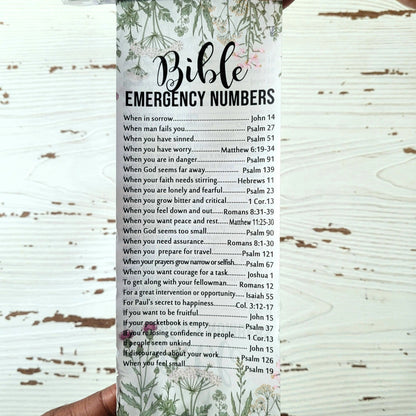 Bible
EMERGENCY NUMBERS
When in sorrow........................ John 14
When man fails you........................ Psalm 27
When you have sinned........................ Psalm 51
When you have worry............ Matthew 6:19-34
When you are in danger..................... Psalm 91
When God seems far away................ Psalm 139
When your faith needs stirring.......... Hebrews 11
When you are lonely and fearful.......... Psalm 23
When you grow bitter and critical.......... 1 Cor.13
When you feel down and out..... Romans 8:31-39
When you want peace and rest.... Matthew 11:25-30
When God seems too small................. Psalm 90
When you need assurance......... Romans 8:1-30
When you prepare for travel............... Psalm 121
When your prayers grow narrow or selfish..... Psalm 67
When you want courage for a task........ Joshua 1
To get along with your fellowman....... Romans 12
For a great intervention or opportunity..... Isaiah 55
For Paul's secret to happiness........... Col. 3:12-17
If you want to be fruitful.................... John 15
If your pocketbook is empty............... Psalm 37
If you're losing confidence in people...... 1 Cor.13
If people seem unkind..................... John 15
If discouraged about your work.......... Psalm 126
When you feel small........................ Psalm 19